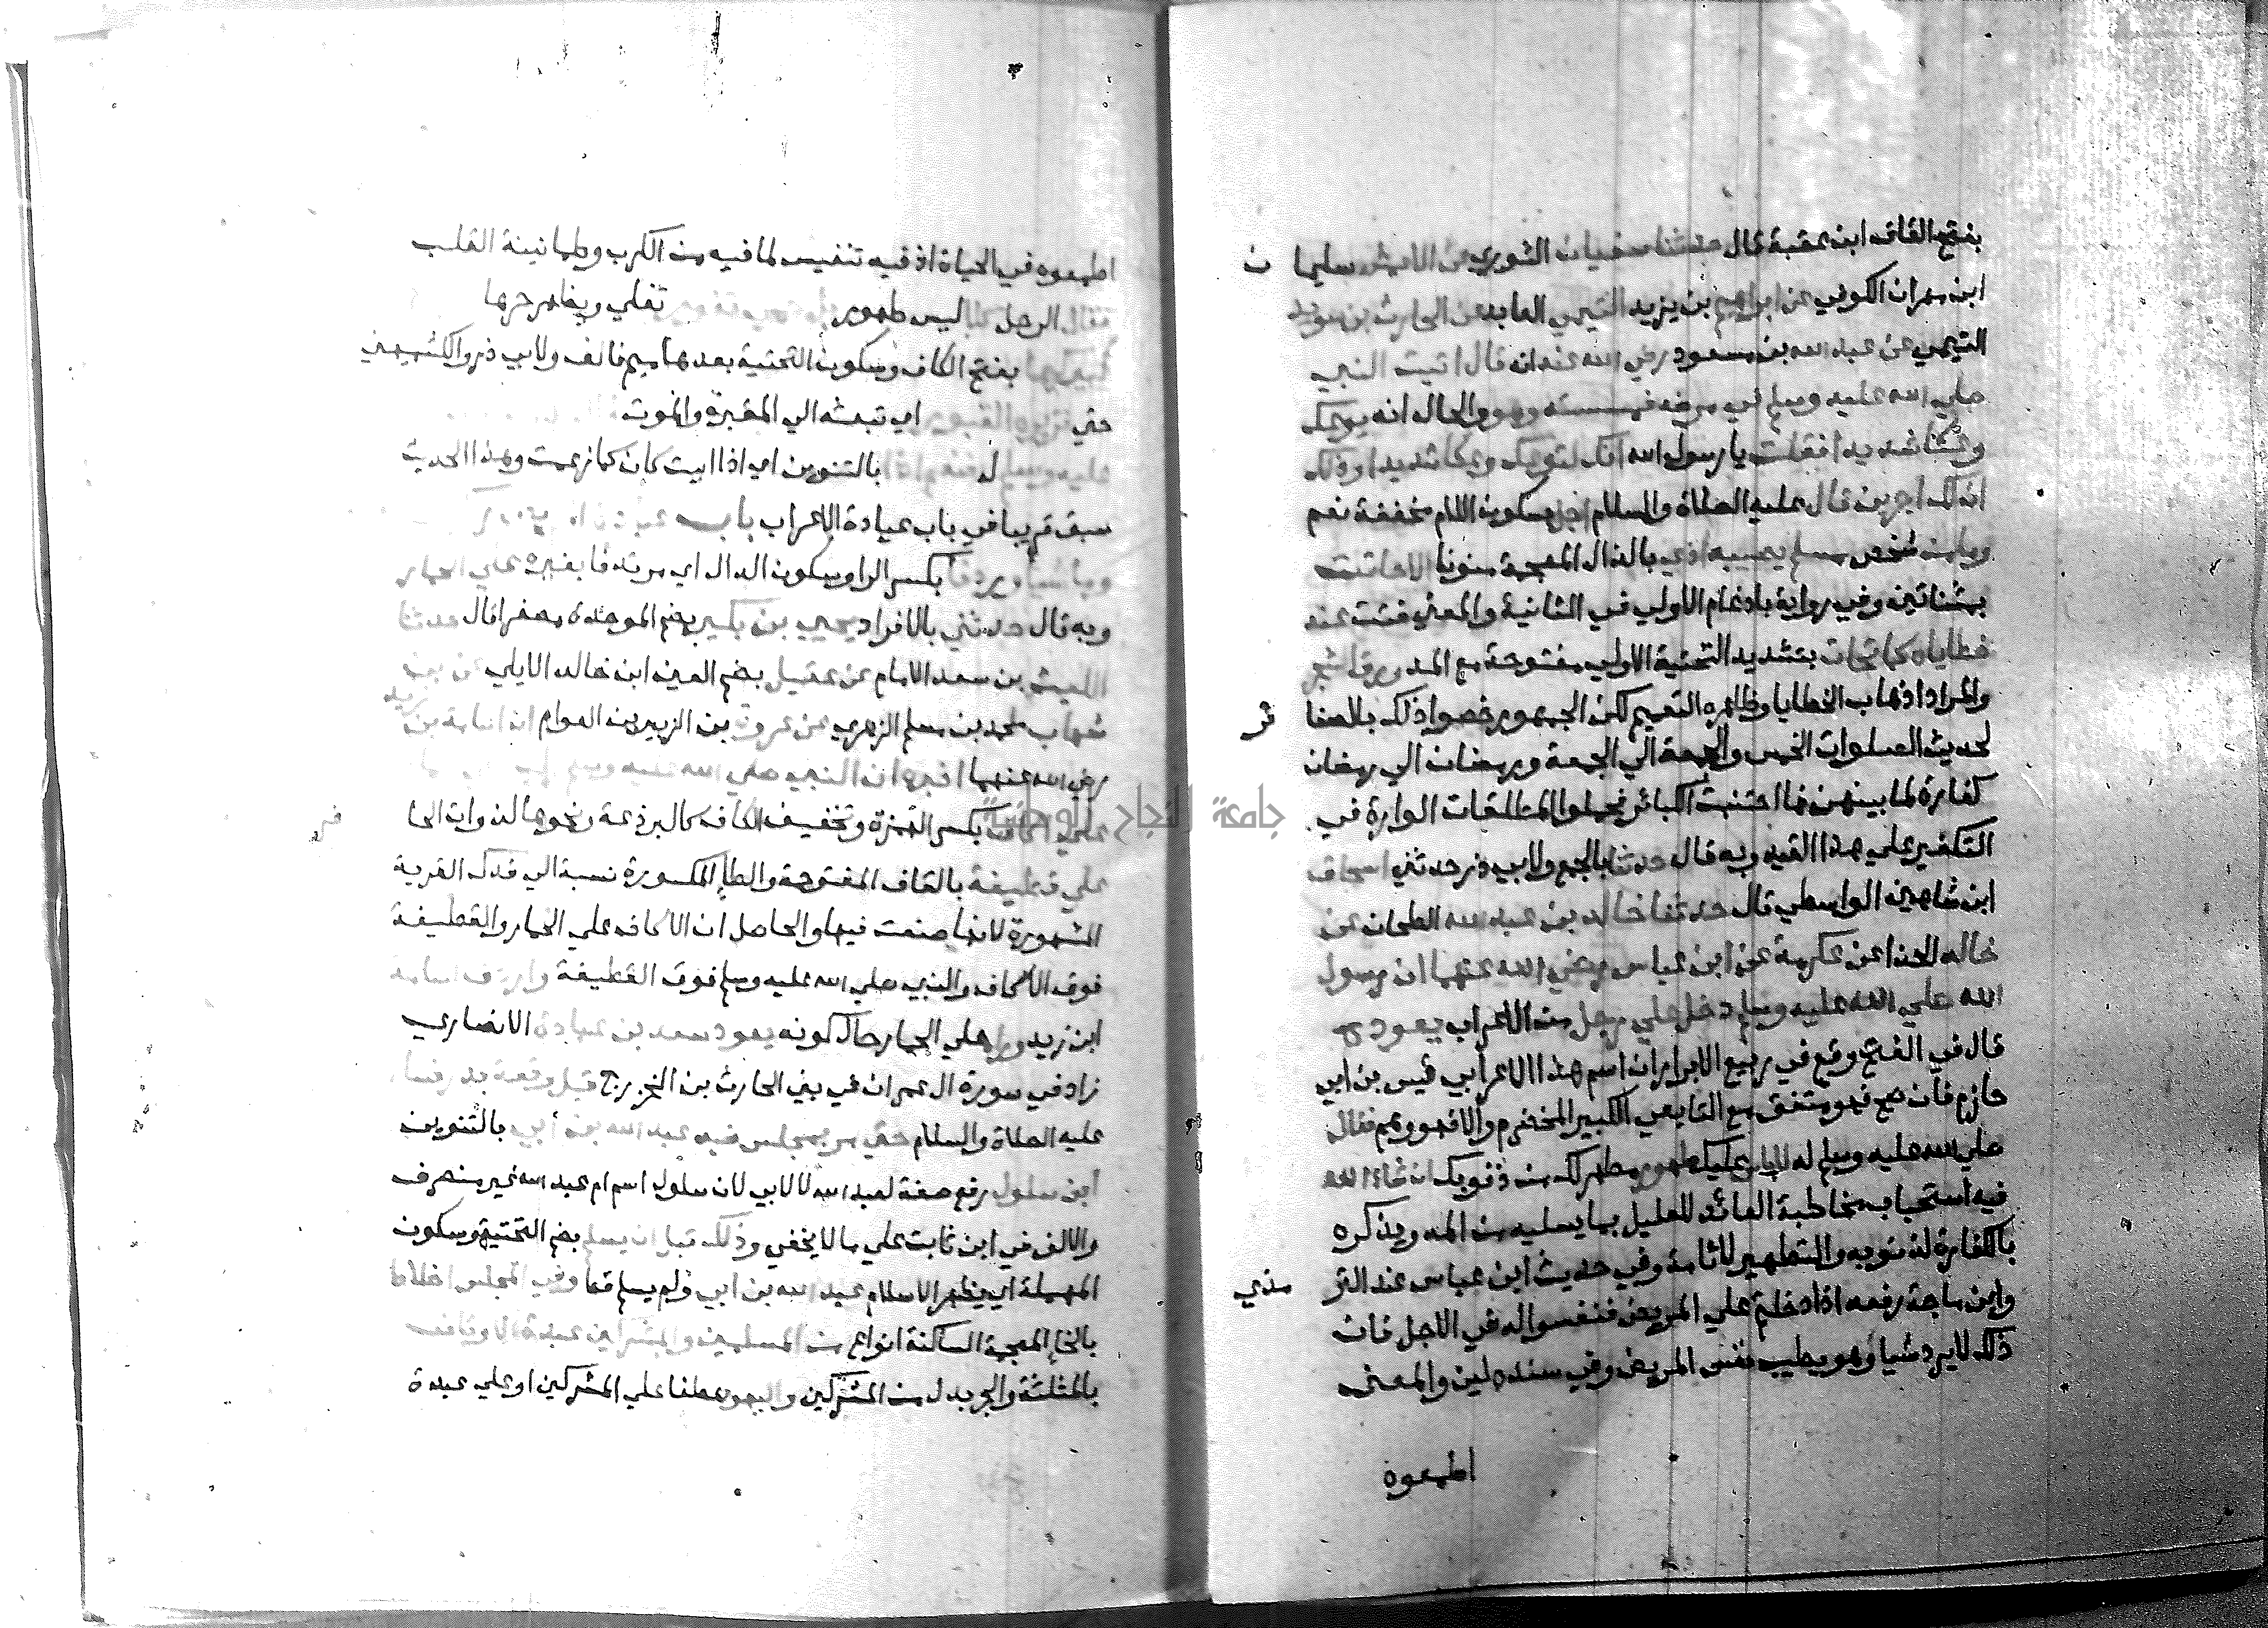 بفتح القاف ابن عقبة قال حدثنا سفيان الثوري عن الاعمش سليمان
ابن مهران الكوفي عن ابراهيم بن يزيد التيمي العابد عن الحارث بن سويد
التيمي عن عبد الله بن مسعود رضي الله عنه انه قال اتيت النبي
صلي الله عليه وسلم في مرضه فمسسته وهو والحال انه يوعك
وعكا شديدا فقلت يا رسول الله انك لتوعك وعكا شديدا وذلك
ان لك اجرين قال عليه الصلاة والسلام اجل بسكون اللام مخففة نعم
وما من شخص مسلم يصيبه اذي بالذال المعجمة منونا الا حاتت
بمثناتين وفي رواية بادغام الاولي في الثانية والمعني فتت عنه
خطاياه كما تحات بتشديد التحتية الاولي مفتوحة مع المد ورق الشجر
والمراد اذهاب الخطايا وظاهره التعميم لكن الجمهور خصوا ذلك بالصغائر
لحديث الصلوات الخمس والجمعة الي الجمعة ورمضان الي رمضان
كفارة لما بينهن ما اجتنبت الكبائر فحملوا المطلقات الواردة في
التكفير علي هذا القيد وبه قال حدثنا بالجمع ولابي ذر حدثني اسحاق
ابن شاهين الواسطي قال حدثنا خالد بن عبد الله الطحان عن
خالد الحذا عن عكرمة عن ابن عباس رضي الله عنهما ان رسول
الله صلي الله عليه وسلم دخل علي رجل من الاعراب يعوده
قال في الفتح وقع في ربيع الابرار ان اسم هذا الاعرابي قيس بن ابي
حازم فان صح فهو متفق مع التابعي الكبير المخضرم والا فهو وهم فقال
صلي الله عليه وسلم له لا باس عليك طهور مطهر لك من ذنوبك ان شاء الله
فيه استحباب مخاطبة العائد للعليل بما يسليه من المه ويذكره
بالكفارة لذنوبه والتطهير لاثامه وفي حديث ابن عباس عند الترمذي
وابن ماجة رفعه اذا دخلتم علي المريض فنفسوا له في الاجل فان
ذلك لا يرد شيا وهو يطيب نفس المريض وفي سنده لين والمعني
اطمعوه
اطمعوه في الحياة اذ فيه تنفيس لما فيه من الكرب وطمانينة القلب
فقال الرجل كلا ليس طهور تغلي ويظهر حرها
بفتح الكاف وسكون التحتية بعدها ميم فالف ولابي ذر والكشميهني
حتي تزيره القبور اي تبعثه الي المقبرة والموت
عليه وسلم له فنعم اذا بالتنوين اي اذا ابيت كان كما زعمت وهذا الحديث
سبق قريبا في باب عيادة الاعراب باب
وماشيا وردفا بكسر الرا وسكون الدال اي مرتدفا بغيره علي الحمار
وبه قال حدثني بالافراد يحيي بن بكير بضم الموحدة مصغرا قال حدثنا
الليث بن سعد الامام عن عقيل بضم العين ابن خالد الايلي عن ابن
شهاب محمد بن مسلم الزهري عن عروة بن الزبير بن العوام ان اسامة بن زيد
رضي الله عنهما اخبره ان النبي صلي الله عليه وسلم
علي اكاف بكسر الهمزة وتخفيف الكاف كالبرذعة ونحوها لذوات الحافر
علي قطيفة بالقاف المفتوحة والطا المكسورة نسبة الي فدك القرية
المشهورة لانها صنعت فيها والحاصل ان الاكاف علي الحمار والقطيفة
فوق الاكاف والنبي صلي الله عليه وسلم فوق القطيفة واردف اسامة
ابن زيد وراه علي الحمار حال كونه يعود سعد بن عبادة الانصاري
زاد في سورة ال عمران في بني الحارث بن الخزرج قبل وقعة بدر فسار
عليه الصلاة والسلام حتي مر بمجلس فيه عبد الله بن أبي بالتنوين
ابن سلول رفع صفة لعبد الله لا لابي لان سلول اسم ام عبد الله غير منصرف
والالف في ابن ثابت علي ما لا يخفي وذلك قبل ان يسلم بضم التحتية وسكون
المهملة اي يظهر الاسلام عبد الله بن ابي ولم يسلم قط وفي المجلس اخلاط
بالخا المعجمة الساكنة انواع من المسلمين والمشركين عبدة الاوثان
بالمثلثة والجر بدل من المشركين واليهود عطفا علي المشركين او علي عبدة
جامعة النجاح الوطنية